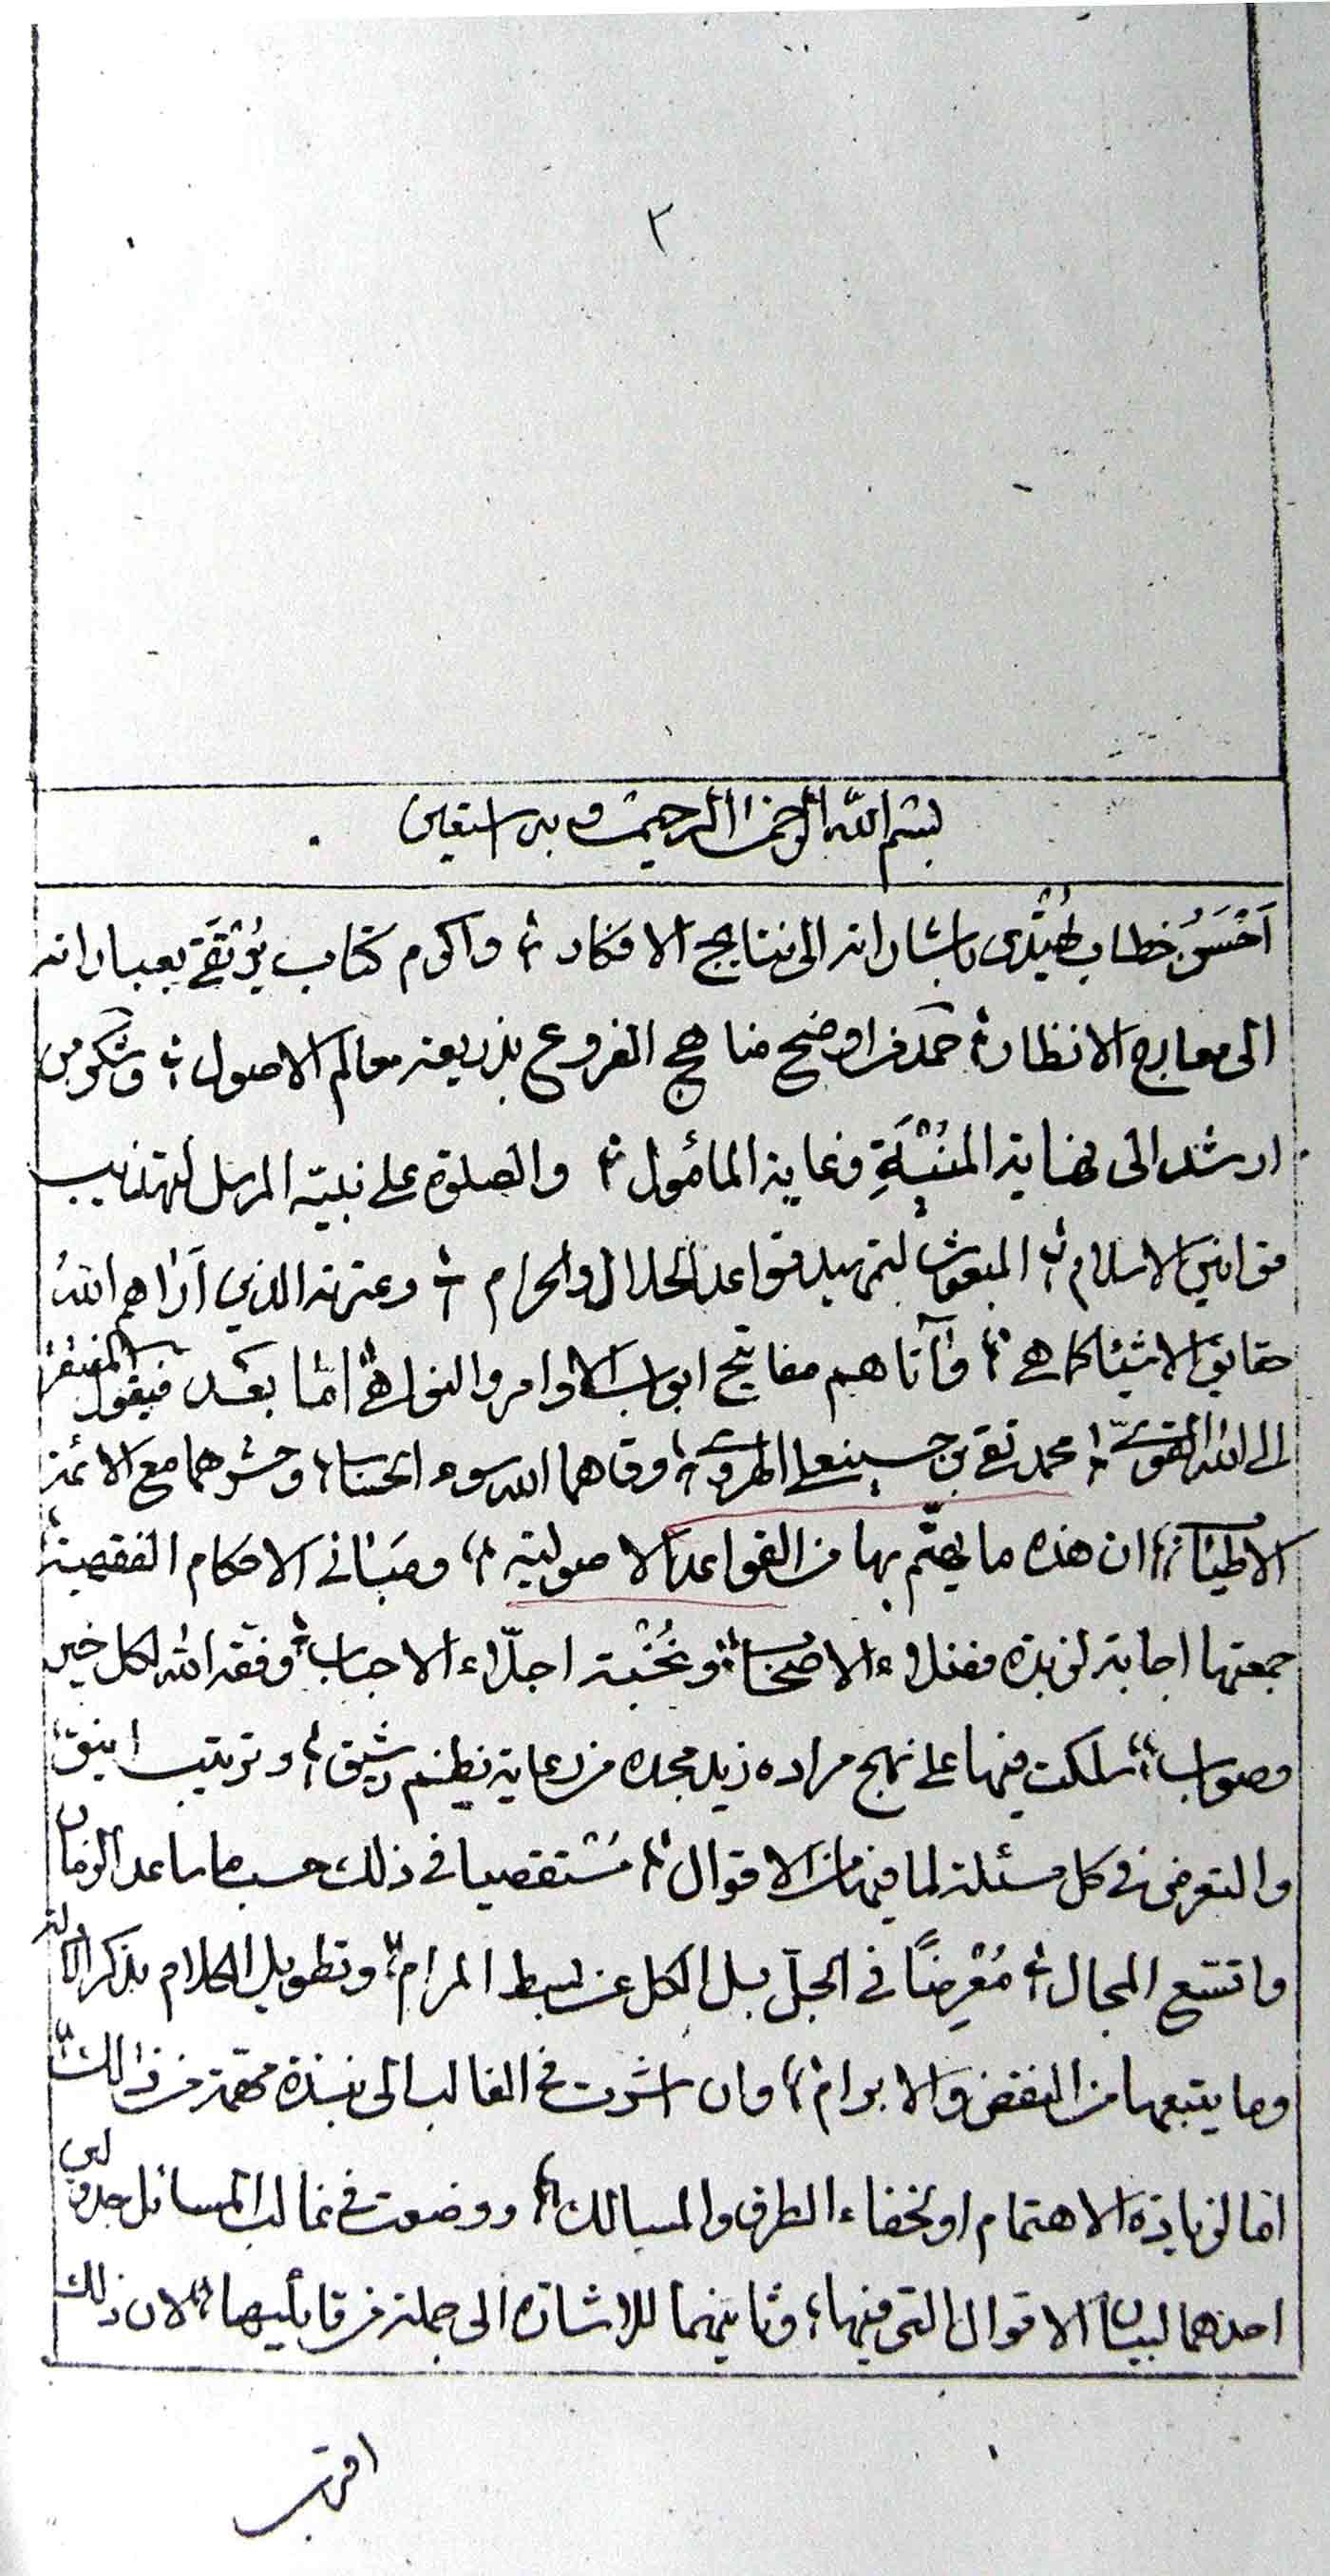 ٢
بسم الله الرحمن الرحیم و به نستعین
اَحْسَنُ خطاب یُهْتَدی باشاراته الی نتایج الافکار و اکرم کتاب یُرْتَقی بعباراته
الی معارج الانظار حمد من اوضح مناهج الفروع بذریعة معالم الاصول وشکر من
ارشد الی نهایة المُنْیَةِ و غایة المأمول والصلوة علی نبیّه المرسل لتهذیب
قوانین الاسلام المبعوث لتمهید قواعد الحلال والحرام وعترته الذین اَراهم اللهُ
حقایق الاشیاء کما هی وآتاهم مفاتیح ابواب الاوامر والنواهی امّا بعد فیقول المفتقر
الی الله القوی محمد تقی بن حسینعلی الهروی وقاهما الله سوء الحساب وحشرهما مع الائمة
الاطیاب ان هذه ما یهتّم بها من القواعد الاصولیة ومبانی الاحکام الفقهیة
جمعتها اجابة لزبدة فضلاء الاصحاب ونُخْبة اجلّاء الاحباب وفقه الله لکل خیر
وصواب سلکت فیها علی نهج مراده زید مجده من رعایة نظم رشیق وترتیب انیق
والتعرض فی کل مسئلة لما فیها من الاقوال مُسْتقصیا فی ذلک حسب ما ساعد الزمان
واتسع المجال مُعْرِضًا فی الجلّ بل الکل عن بسط المرام وتطویل الکلام بذکر الادلة
وما یتبعها من النقض والابرام وان اشرت فی الغالب الی نبذة مهمة من ذالک
اما لزیادة الاهتمام او لخفاء الطرق والمسالک ووضعت فی غالب المسائل جدولین
احدهما لبیان الاقوال التی فیها وثانیهما للاشارة الی جملة من قائلیها لان ذلک
اقرب